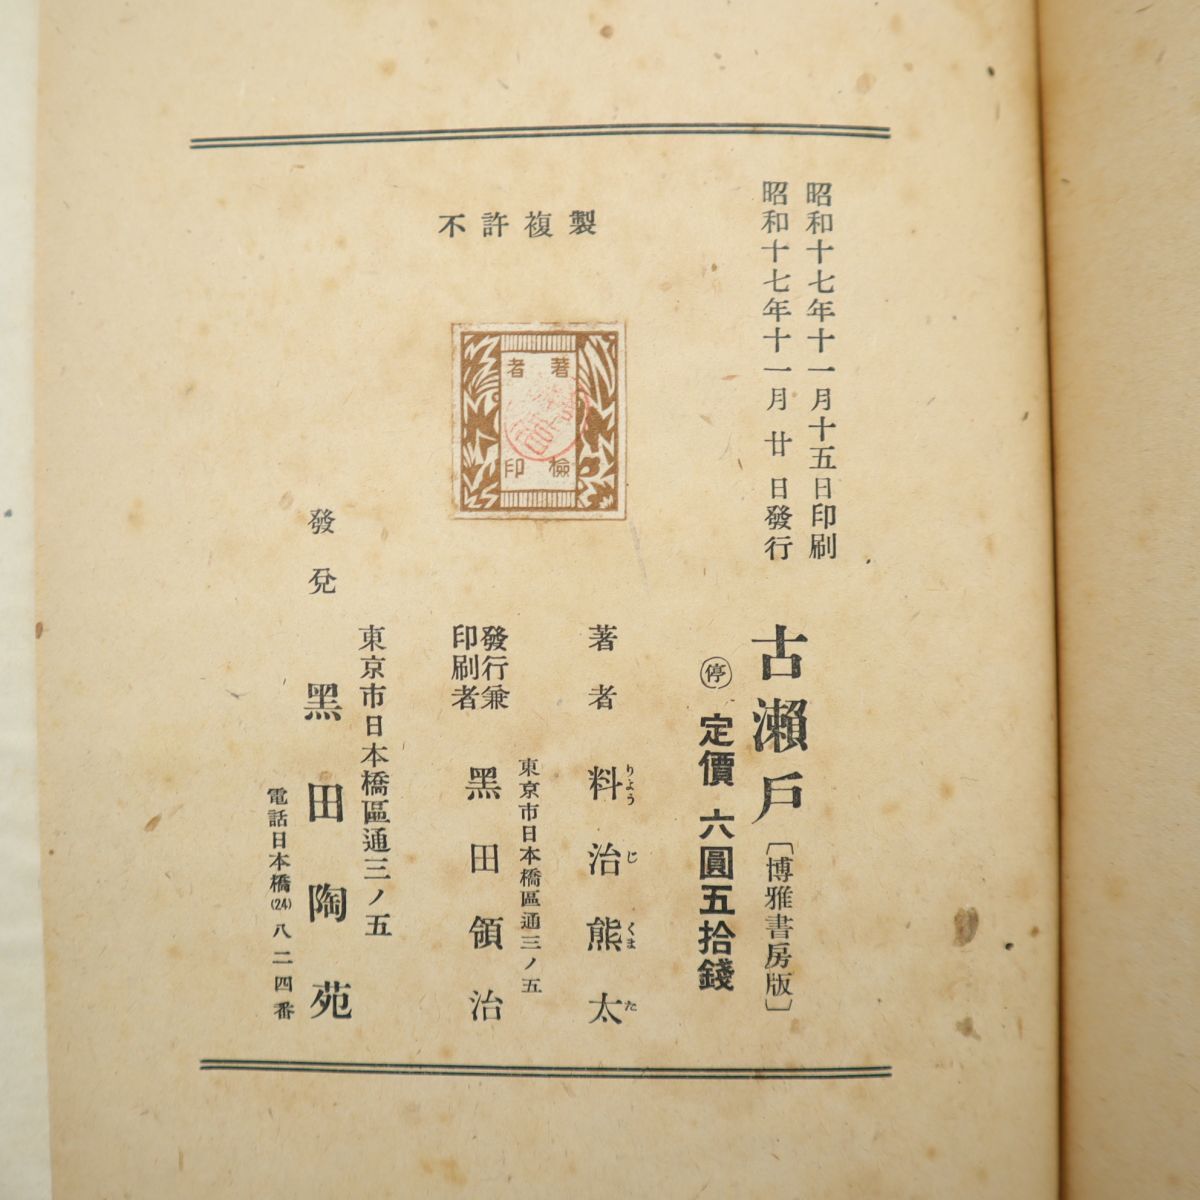 昭和十七年十一月十五日印刷
昭和十七年十一月廿日發行
古瀬戸〔博雅書房版〕
停 定價 六圓五拾錢
著者 料治熊太
りようじくまた
東京市日本橋區通三ノ五
發行兼
印刷者 黑田領治
不許複製
著者
檢印
東京市日本橋區通三ノ五
發兌 黑田陶苑
電話日本橋(24)八二四番